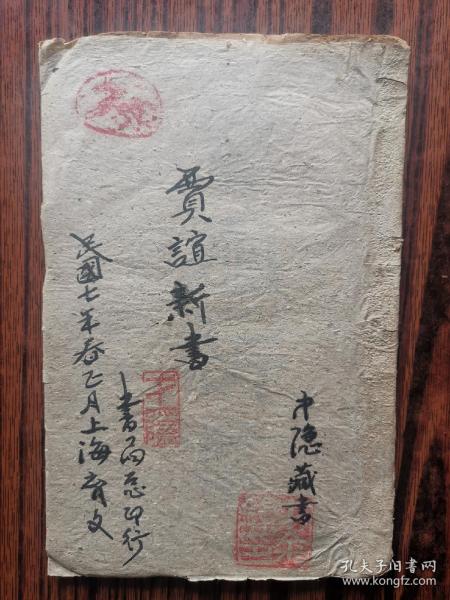 中隐藏書
賈誼新書
民國七年春正月上海育文
書局忩印行
孔夫子旧书网
www.kongfz.com